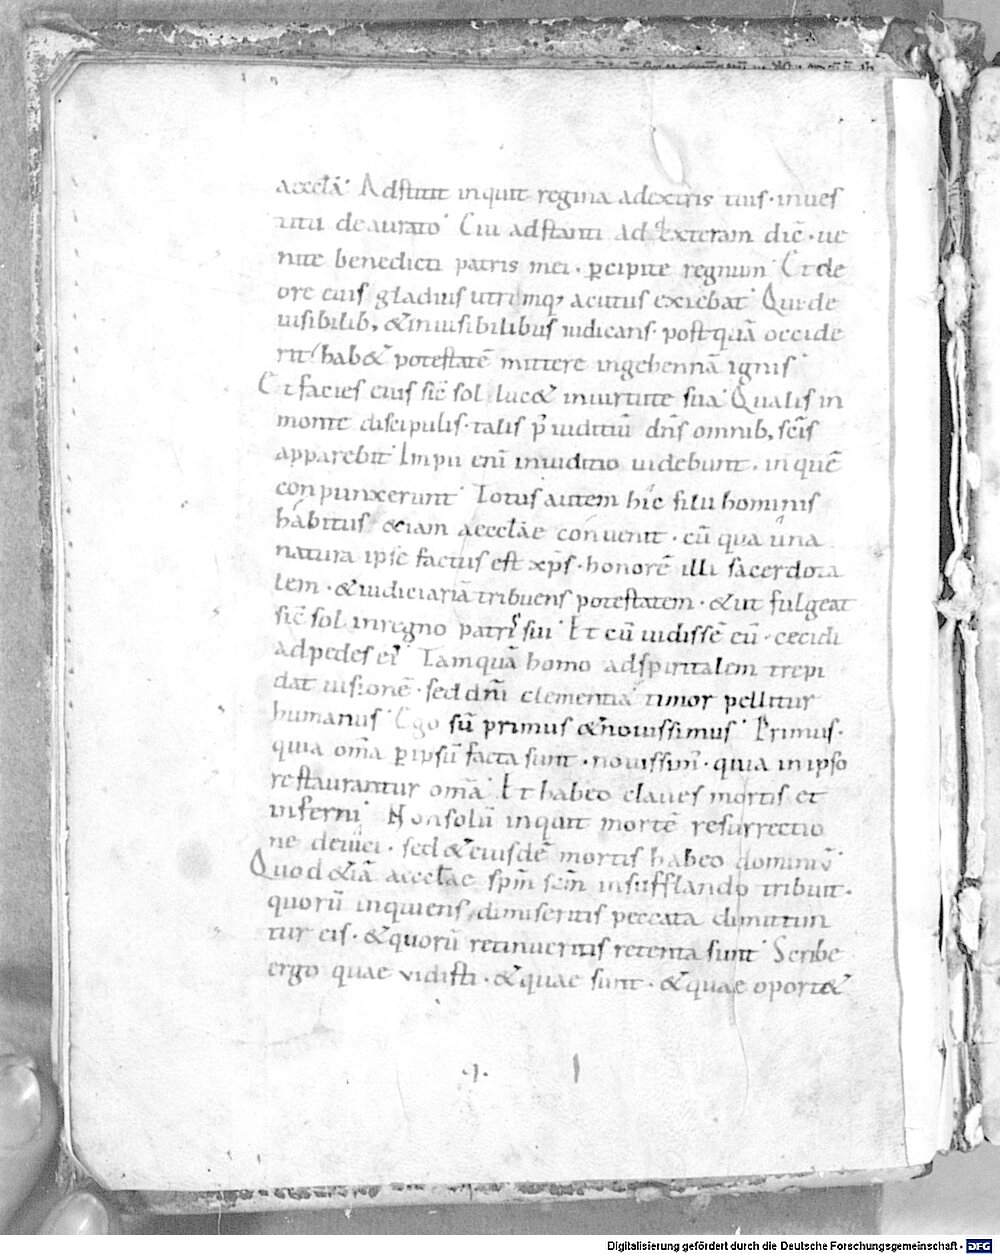 aecclā· Adstitit inquit regina adextris tuis· inues
titu deaurato· Cui adstanti ad dexteram dic̄· ue
nite benedicti patris mei· p̄cipite regnum· Et de
ore eius gladius utrimq; acutus exiebat· Qui de
uisibilib; & inuisibilibus iudicans· postquā occide
rit hab& potestatē mittere ingehennā ignis·
Et facies eius sic̄ sol luc& inuirtute sua· Qualis in
monte discipulis· talis p̄ iuditiū dn̄s omnib; sc̄is
apparebit· Impii eni̅ iniuditio uidebunt· inquē
conpunxerunt· Totus autem hic filii hominis
habitus &iam aecclāe conuenit· cū qua una
natura ipse factus est xp̄s· honorē illi sacerdota
lem· & iudiciariā tribuens potestatem· & ut fulgeat
sic̄ sol inregno patris sui· Et cū uidissē eū· cecidi
adpedes ei'· Tamquā homo adspiritalem trepi
dat uisionē· sed dn̄i clementia timor pellitur
humanus· Ego sū primus & nouissimus· Primus·
quia om̄a p̄ ipsū facta sunt· nouissim'· quia in ipso
restaurantur om̄a· Et habeo claues mortis et
inferni· Non solū inquit mortē resurrectio
ne deuici· sed & eiusdē mortis habeo dominiū·
Quod &iā aecclāe sp̄m sc̄m insufflando tribuit·
quorū inquiens dimiseritis peccata dimittun
tur eis· & quorū retinueritis retenta sunt· Scribe
ergo quae vidisti· & quae sunt· & quae oport&
·I·
Digitalisierung gefördert durch die Deutsche Forschungsgemeinschaft - DFG